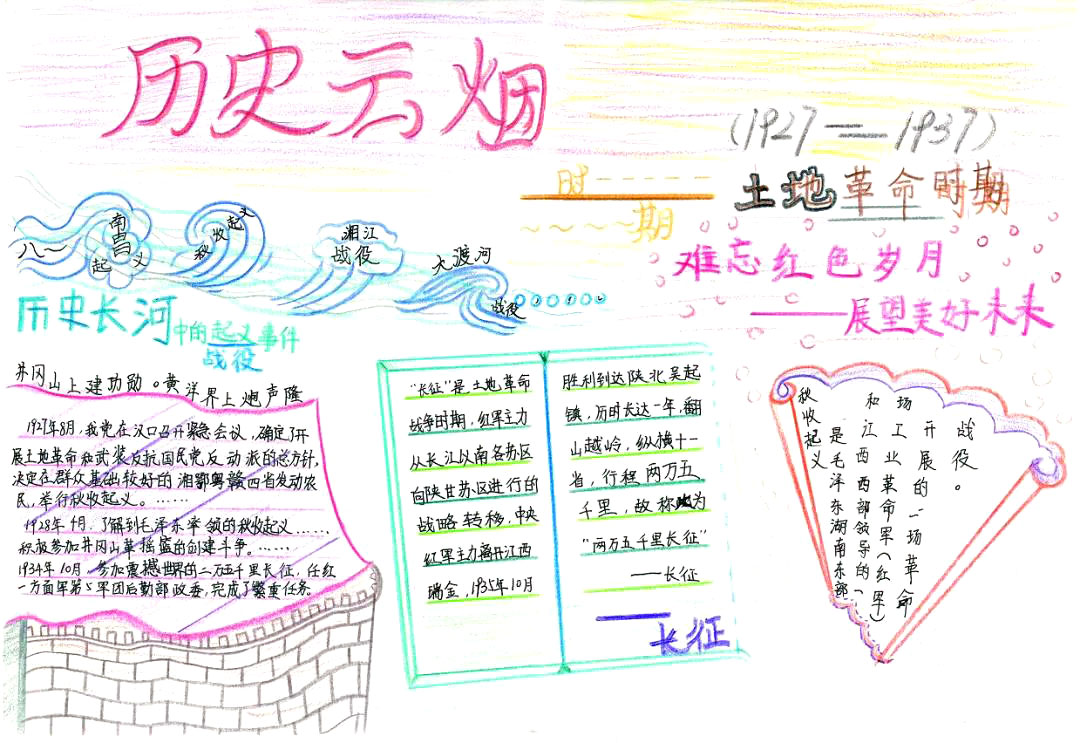 历史云烟
(1927——1937)
时
期
土地革命时期
难忘红色岁月
——展望美好未来
八一
南昌
起义
秋收起义
湘江
战役
大渡河
战役
历史长河中的起义事件
战役
井冈山上建功勋。黄洋界上炮声隆
1927年8月,我党在汉口召开紧急会议,确定了开
展土地革命和武装反抗国民党反动派的总方针,
决定在群众基础较好的湘鄂粤赣四省发动农
民,举行秋收起义。……
1928年4月,了解到毛泽东率领的秋收起义……
积极参加井冈山革摇篮的创建斗争。……
1934年10月,参加震撼世界的二万五千里长征,任红
一方面军第5军团后勤部政委,完成了繁重任务.
“长征”是土地革命
战争时期,红军主力
从长江以南各苏区
向陕甘苏区进行的
战略转移.中央
红军主力离开江西
瑞金,1935年10月
胜利到达陕北吴起
镇,历时长达一年,翻
山越岭,纵横十一
省,行程两万五
千里,故称为
“两万五千里长征”
——长征
——长征
秋收起义
是毛泽东湖南东部
和江西西部领导的
工业革命军(红军)
场开展的一场革命
战役。